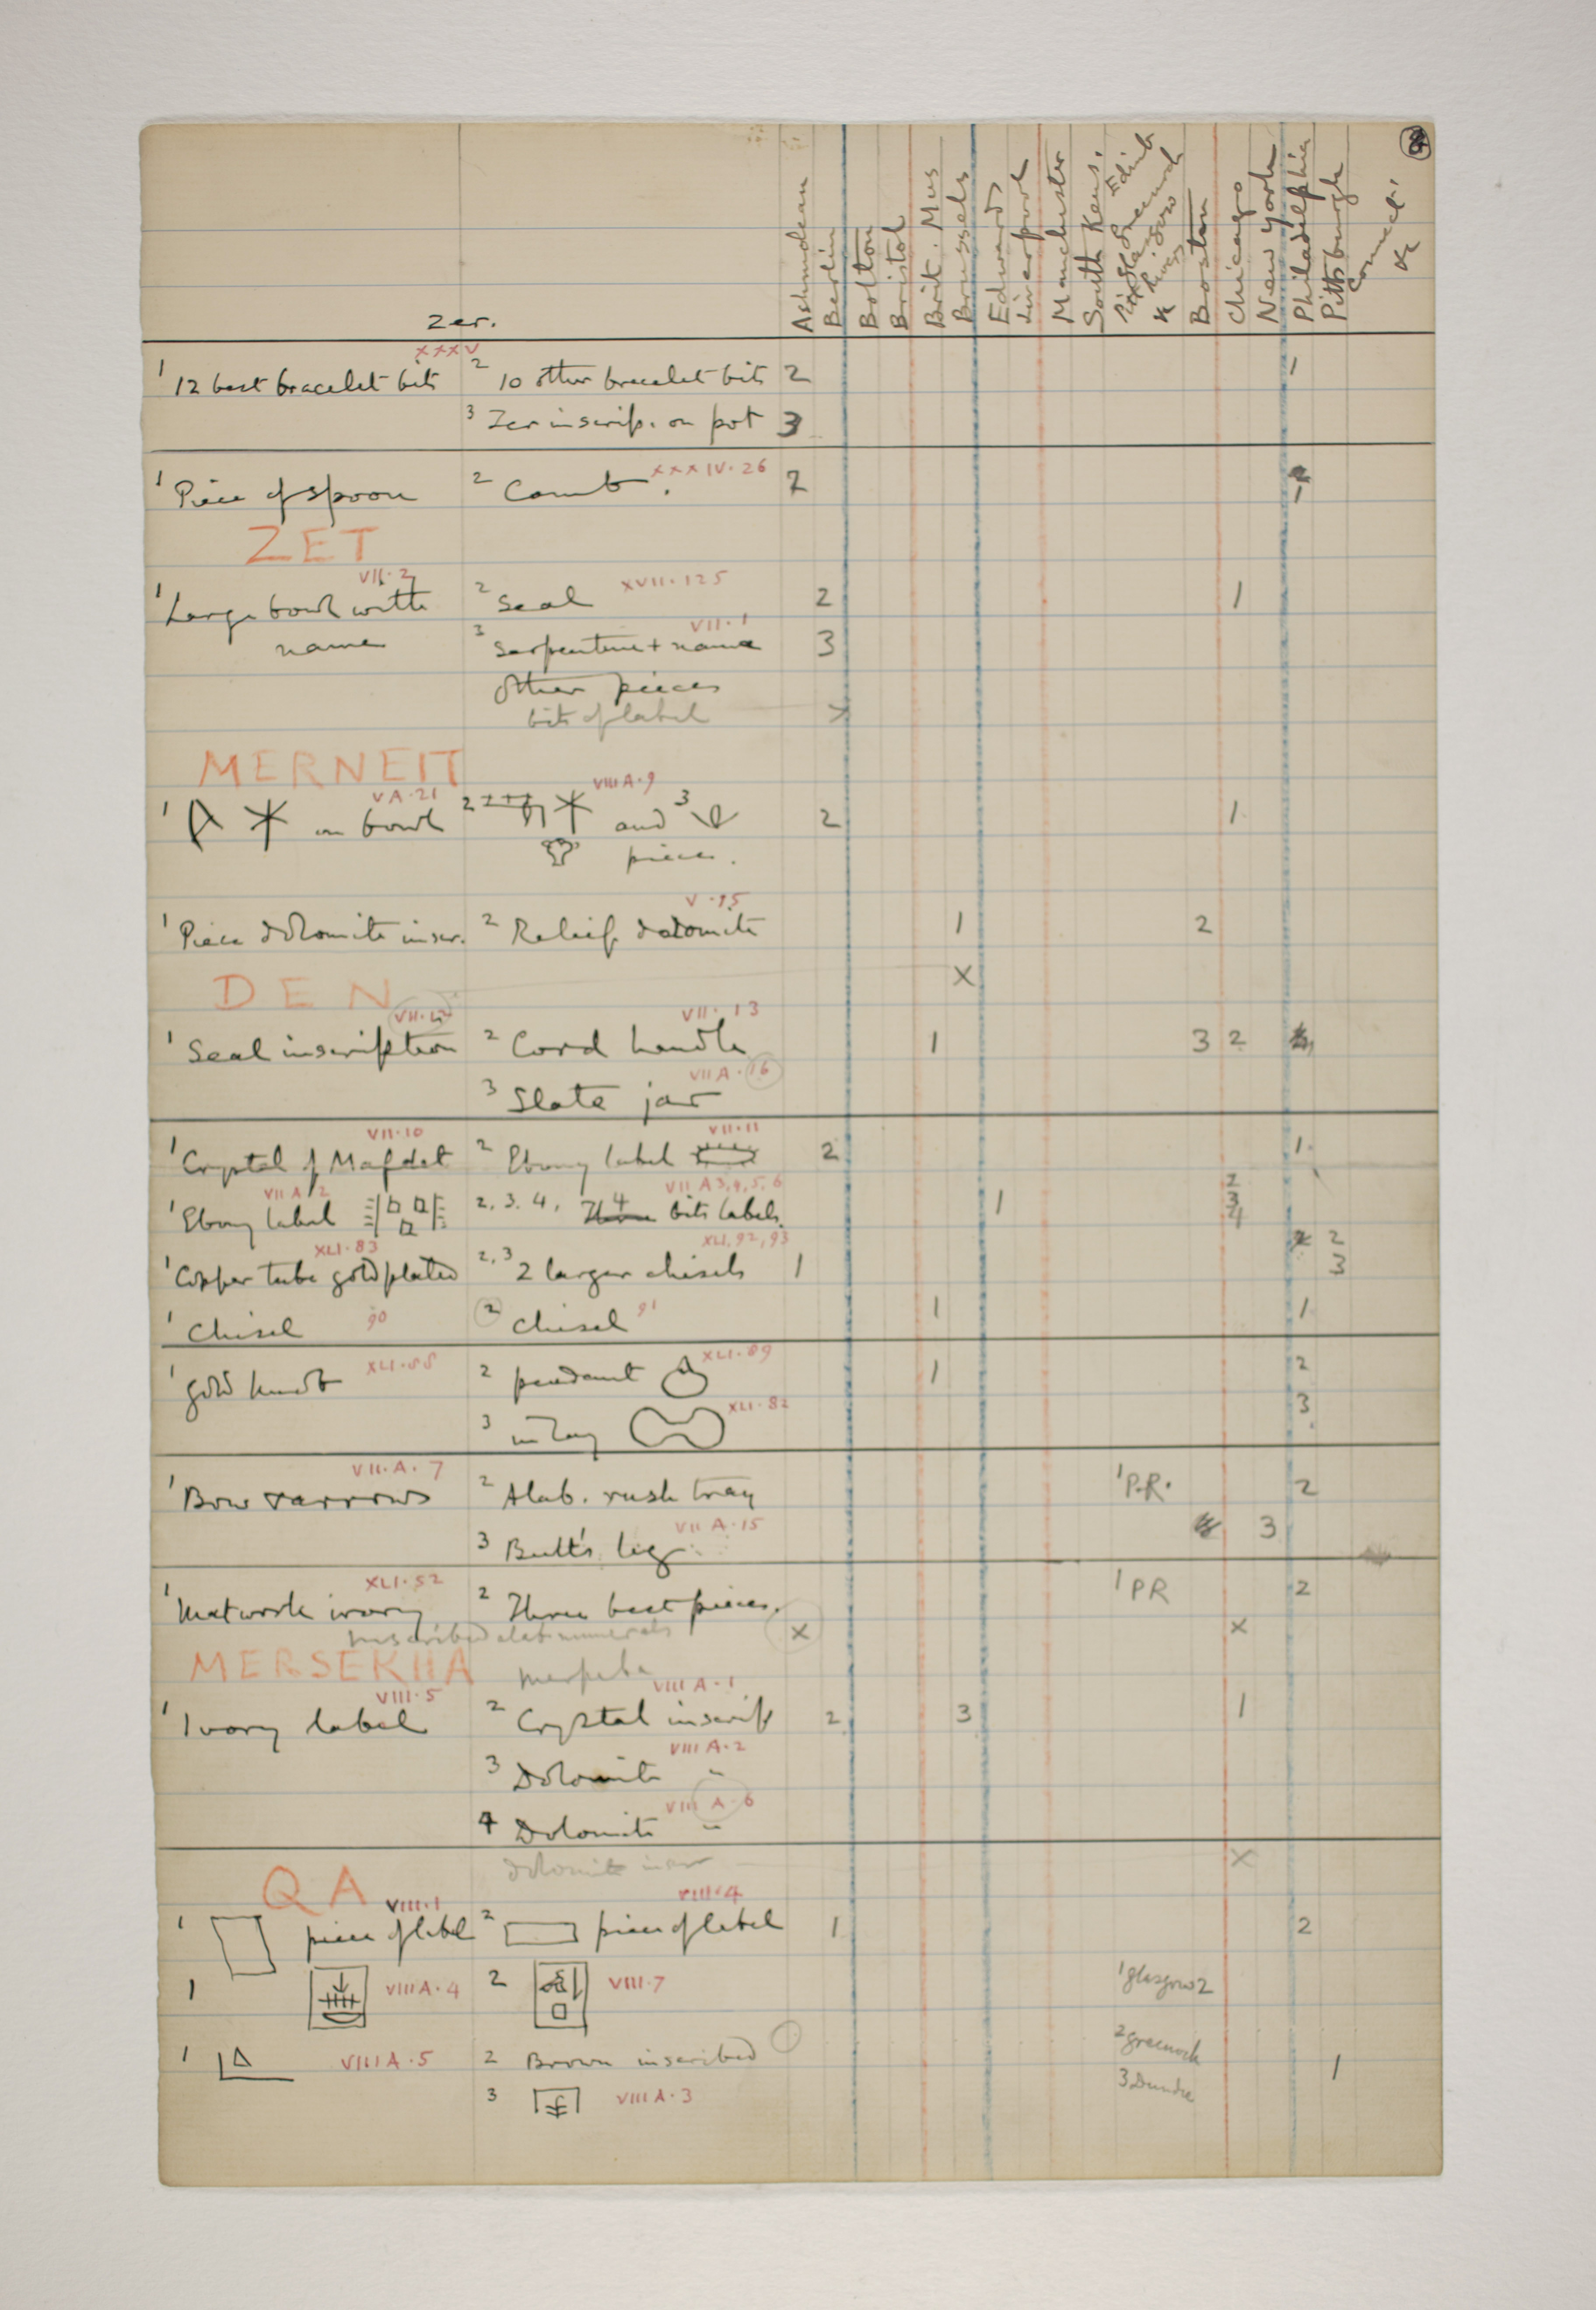 Ashmolean Berlin Bolton Bristol Brit. Mus Brussels Edwards Liverpool Manchester South Kens. Edinb Greenock & Boston Chicago New York Philadelphia Pittsburgh Connect. &c
Zer.
XXXV
1 12 best bracelet bits 2 10 other bracelet bits 2 1
3 Zer inscrip. on pot 3
XXXIV.26
1 Piece of spoon 2 Comb. 2 1
ZET
VII.2 XVII.125
1 Large bowl with 2 Seal 2 1
VII.1
name 3 Serpentine + name 3
other pieces
bits of label X
MERNEIT
V A.21 VIII A.9
1 on bowl 2 and 3 2 1
pieces.
V.15
1 Piece dolomite inscr. 2 Relief dolomite 1 2
DEN X
VII.12 VII.13
1 Seal inscription 2 Cord handle 1 3 2
VII A.16
3 Slate jar
VII.10 VII.11
1 Crystal of Mafdet 2 Ebony label 2 1
VII A 2 VII A 3,4,5,6
1 Ebony label 2, 3, 4, 4 bits labels. 1 2 3 4
XLI.83 XLI,92,93
1 Copper tube gold plated 2, 3 2 larger chisels 1 2 2 3
1 Chisel 90 2 Chisel 91 1 1
XLI.88 XLI.89
1 gold knob 2 pendant 1 2
XLI.82
3 inlay 3
VII.A.7
1 Bow & arrows 2 Alab. rush tray 1 P.R. 2
VII A.15
3 Bull's leg 3
XLI.52
1 Matwork ivory 2 Three best pieces. 1 PR 2
inscribed alab numerals X X
MERSEKHA Merpeba
VIII.5 VIII A.1
1 Ivory label 2 Crystal inscrip 2 3 1
VIII A.2
3 Dolomite "
VIII A.6
4 Dolomite "
dolomite inscr X
QA
VIII.1 VIII.4
1 piece of label 2 piece of label 1 2
1 VIII A.4 2 VIII.7 1 Glasgow 2
1 VIII A.5 2 Brown inscribed 2 Greenock 1
3 VIII A.3 3 Dundee